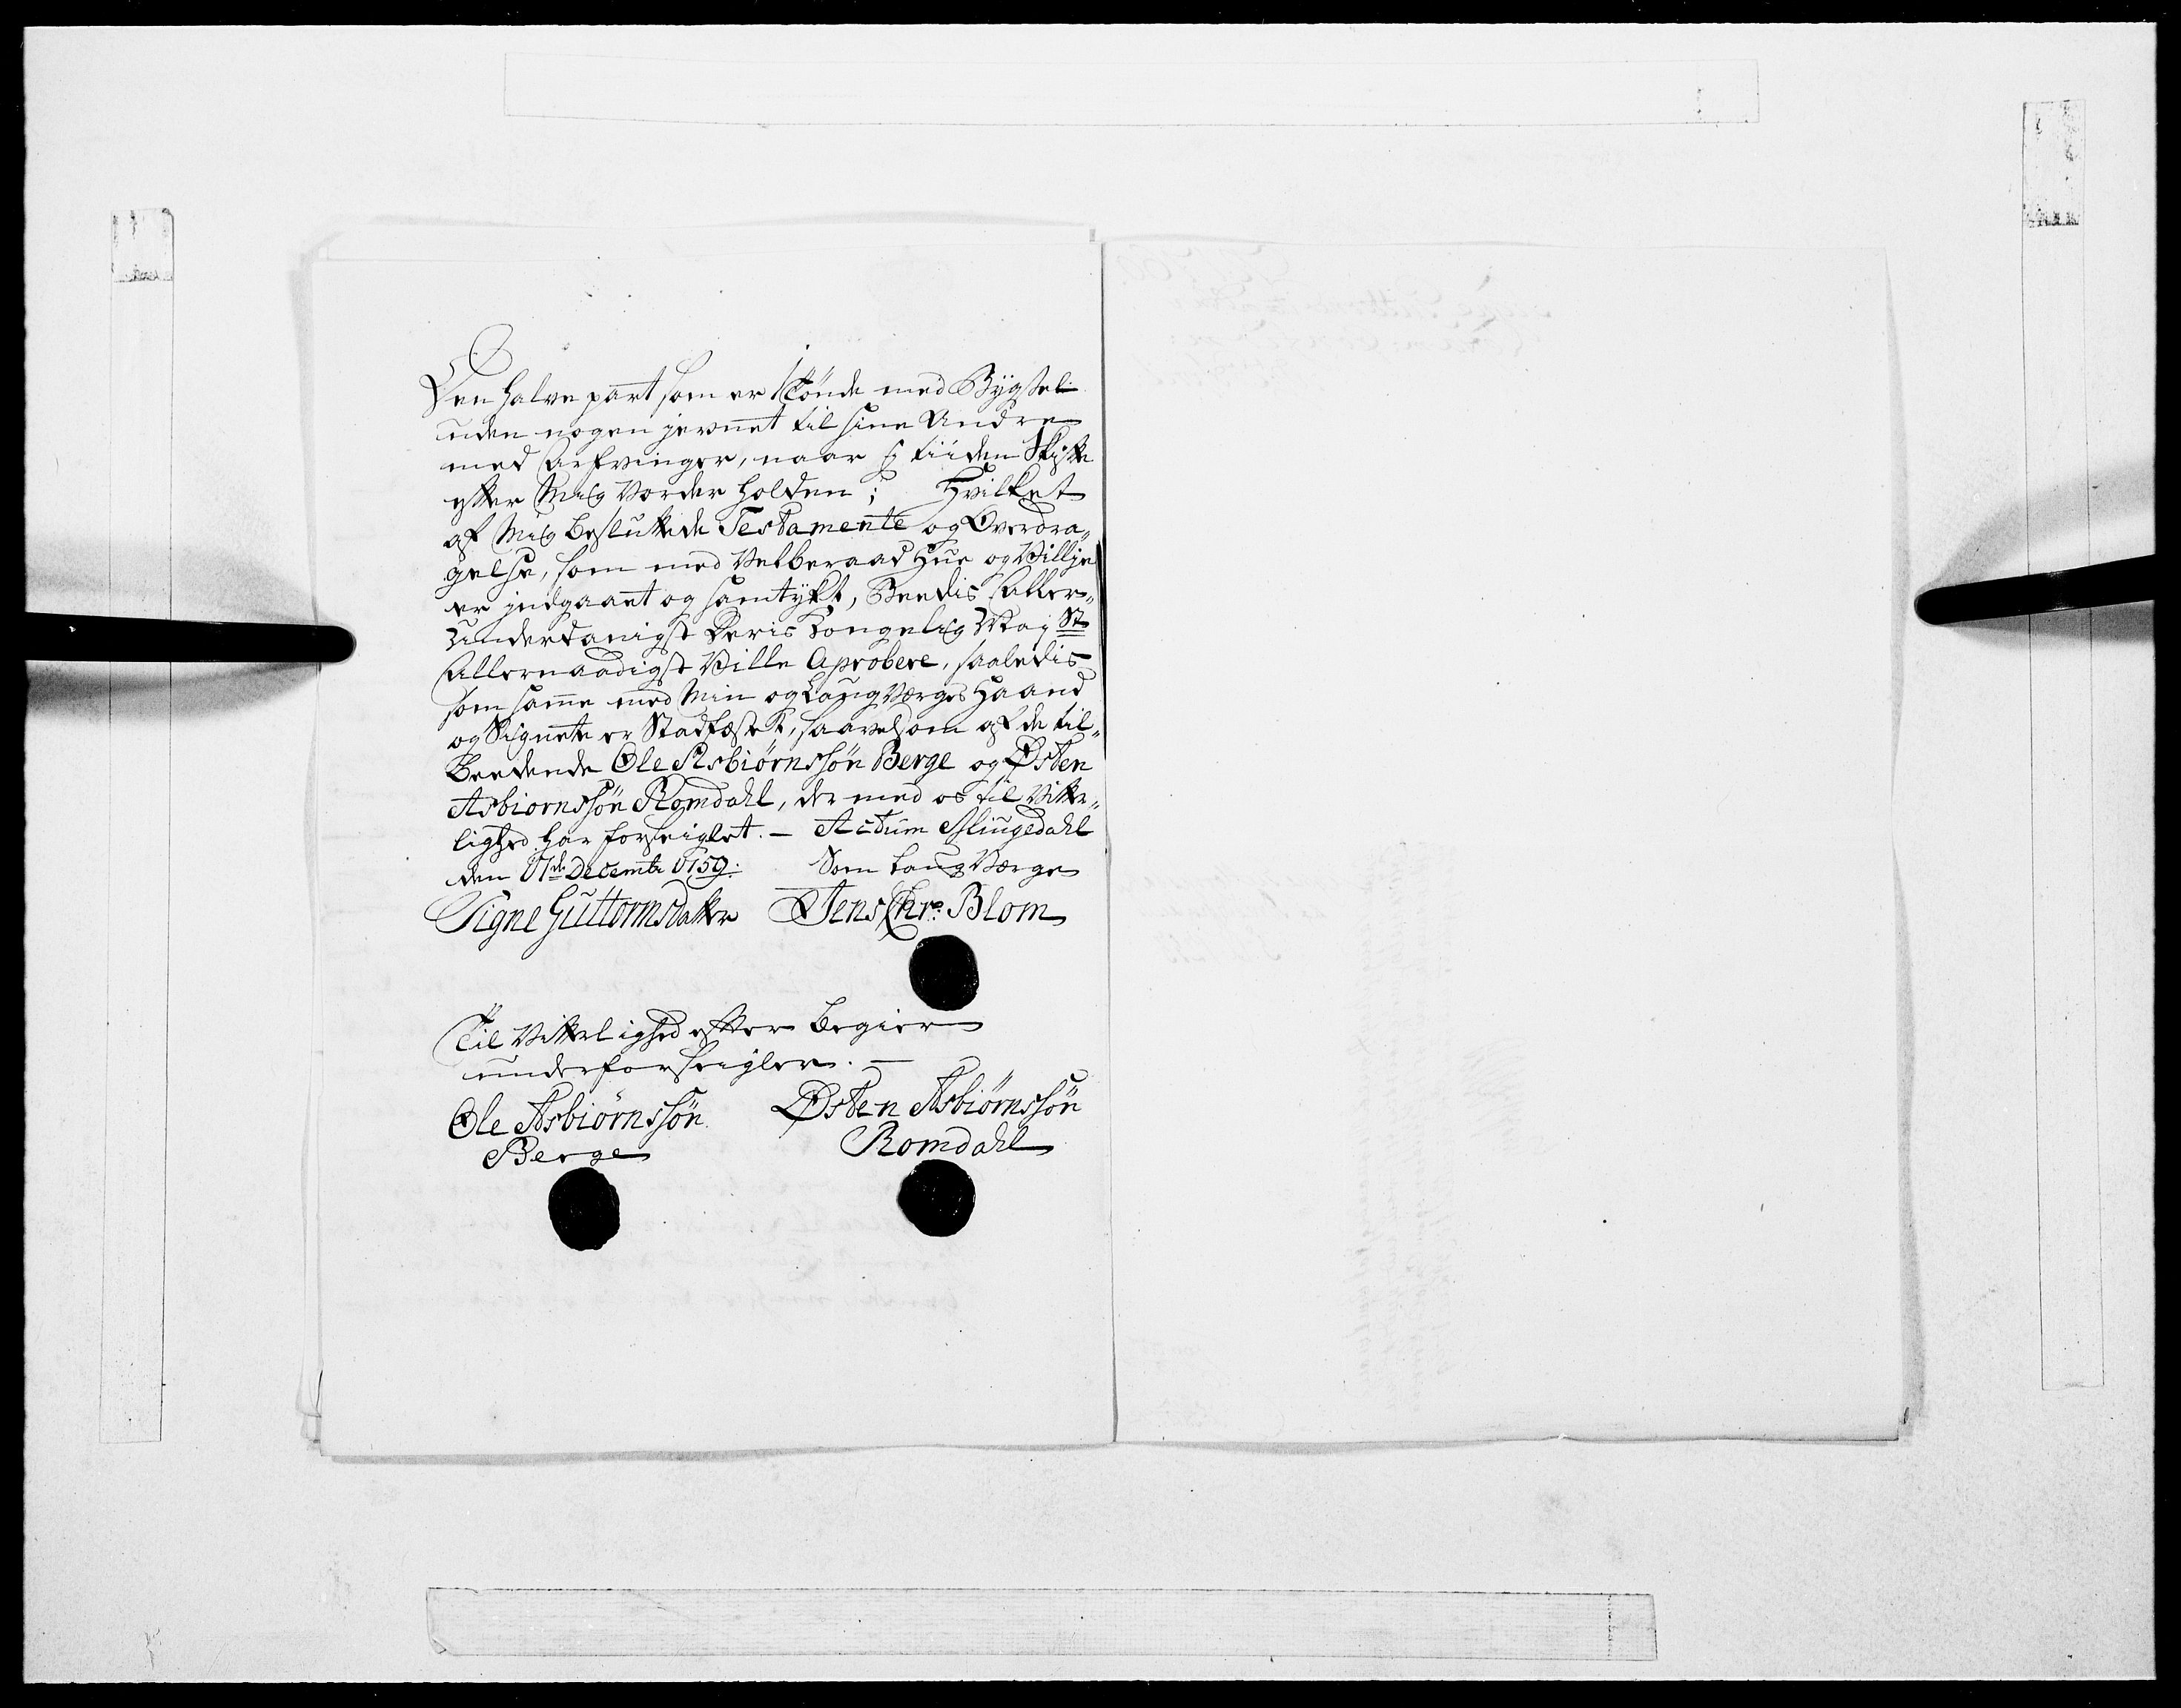 Den halve part som er 1 Tønde med Bygsel
uden nogen jevnet til sine Andre
med Arfvinger, naar i tiiden Skifte
efter Mig Vorder holden; Hvilket
af Mig besluttede Testamente og Overdra„
gelse, som med Velberaad Hue og Villje
er jndgaaet og samtykt, Beedis Aller„
Underdanigst Deris Kongelig Maj St
Allernaadigst Ville Aprobere, saaledis
som samme med Min og LaugVærges Haand
og Signete er Stadfæstet, saavelsom af de til„
Beedende Ole Asbiørnssøn Berge og Østen
Asbiornssøn Romdahl, der med os til Vitter„
lighed har forseiglet. — Actum Slingedahl
den 17de Decembr 1759. Som LaugVærge
Signe Guttormsdatter Jens Chr: Blom
Til Vitterlighed efter Begier
underforseigler. —
Ole Asbiørnssøn Østen Asbiørnssøn
Berge Romdahl